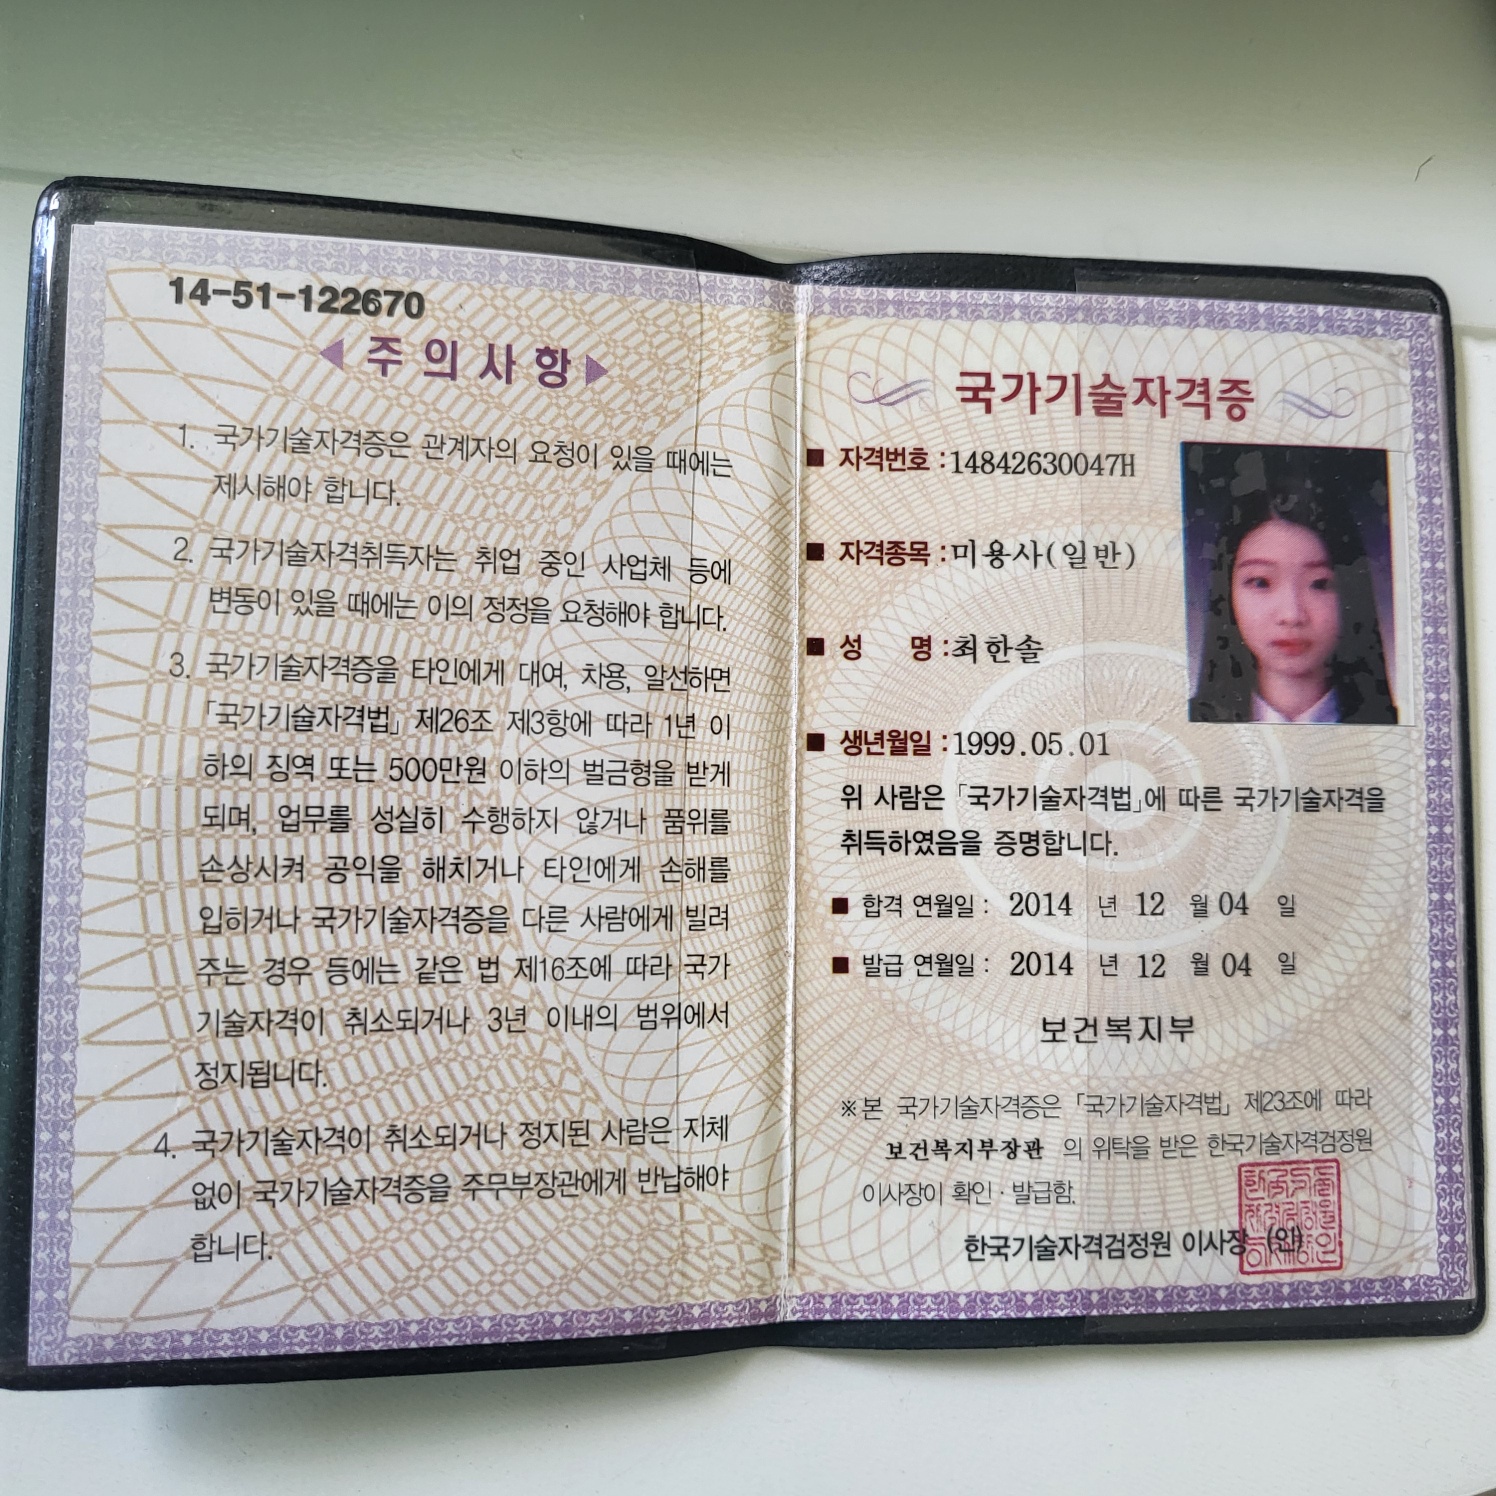 14-51-122670
주의사항
1. 국가기술자격증은 관계자의 요청이 있을 때에는
제시해야 합니다.
2. 국가기술자격취득자는 취업 중인 사업체 등에
변동이 있을 때에는 이의 정정을 요청해야 합니다.
3. 국가기술자격증을 타인에게 대여, 차용, 알선하면
「국가기술자격법」 제26조 제3항에 따라 1년 이
하의 징역 또는 500만원 이하의 벌금형을 받게
되며, 업무를 성실히 수행하지 않거나 품위를
손상시켜 공익을 해치거나 타인에게 손해를
입히거나 국가기술자격증을 다른 사람에게 빌려
주는 경우 등에는 같은 법 제16조에 따라 국가
기술자격이 취소되거나 3년 이내의 범위에서
정지됩니다.
4. 국가기술자격이 취소되거나 정지된 사람은 지체
없이 국가기술자격증을 주무부장관에게 반납해야
합니다.
국가기술자격증
■ 자격번호 :14842630047H
■ 자격종목 :미용사(일반)
■ 성 명 :최한솔
■ 생년월일 :1999.05.01
위 사람은 「국가기술자격법」에 따른 국가기술자격을
취득하였음을 증명합니다.
■ 합격 연월일 : 2014 년 12 월 04 일
■ 발급 연월일 : 2014 년 12 월 04 일
보건복지부
※본 국가기술자격증은 「국가기술자격법」 제23조에 따라
보건복지부장관 의 위탁을 받은 한국기술자격검정원
이사장이 확인·발급함.
한국기술자격검정원 이사장 (인)